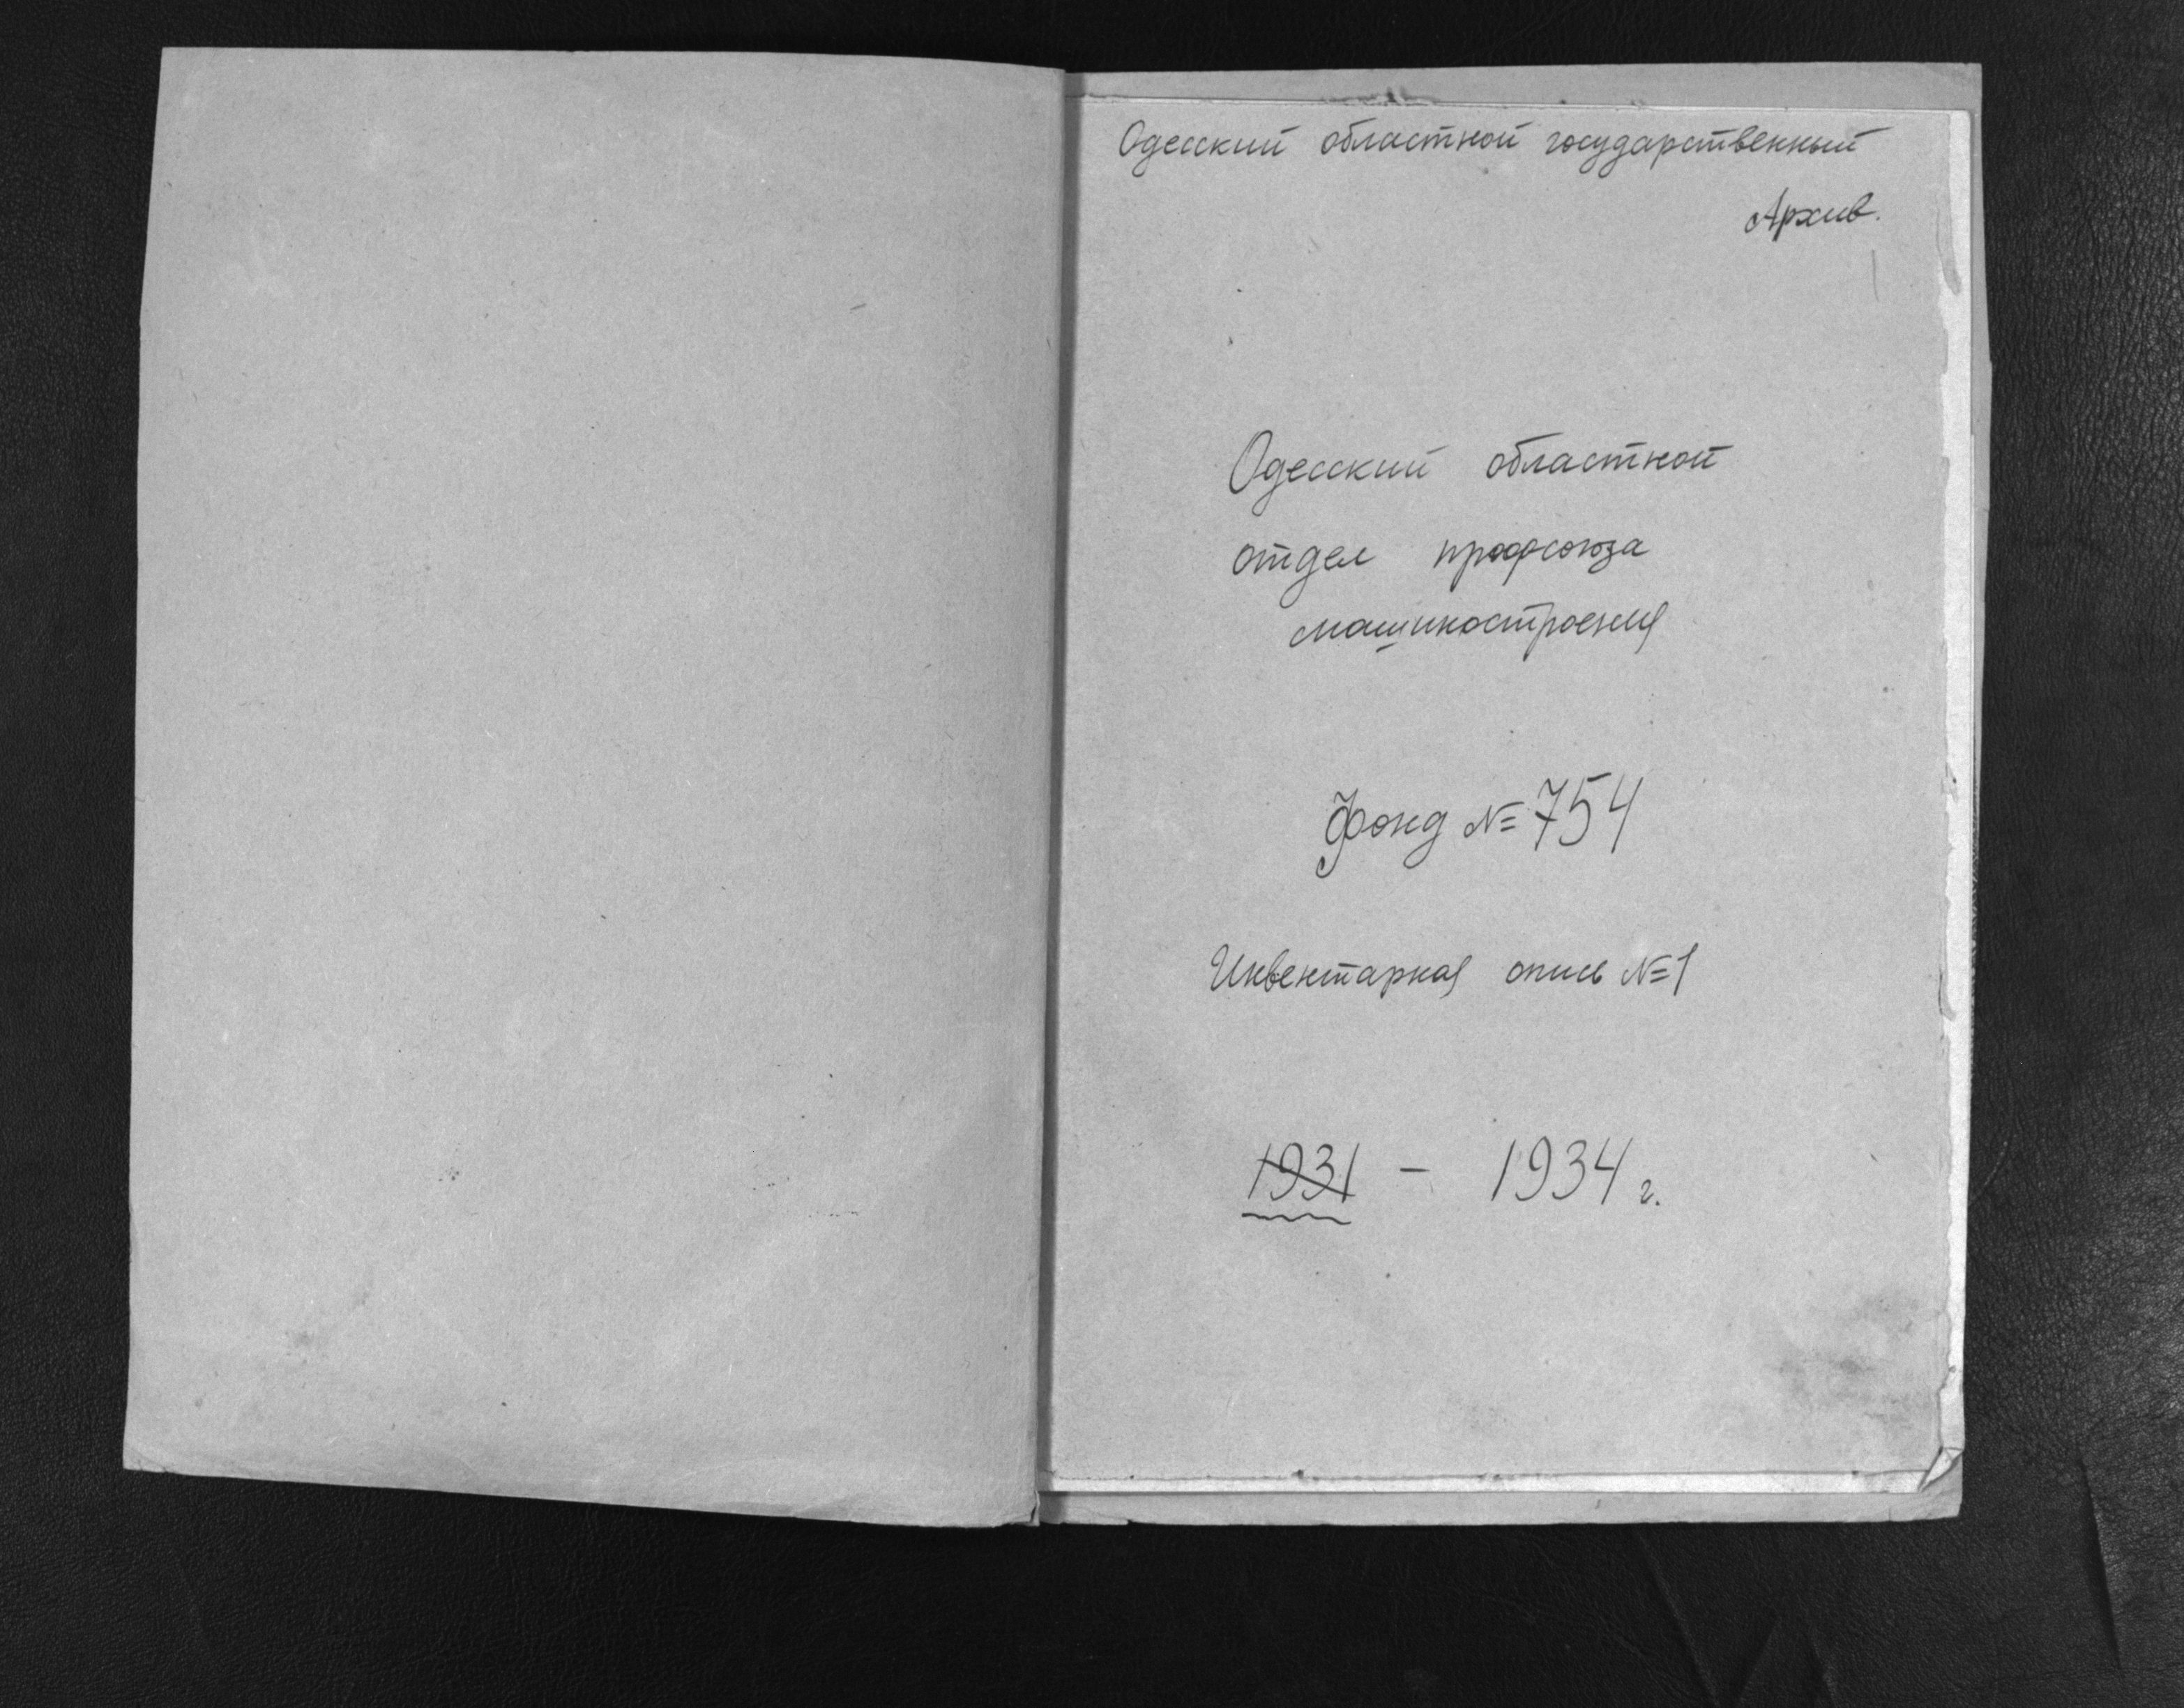 Одесский областной государственный
Архив.
Одесский областной
отдел профсоюза
машиностроения
Фонд № 754
Инвентарная опись № 1
1931 - 1934 г.